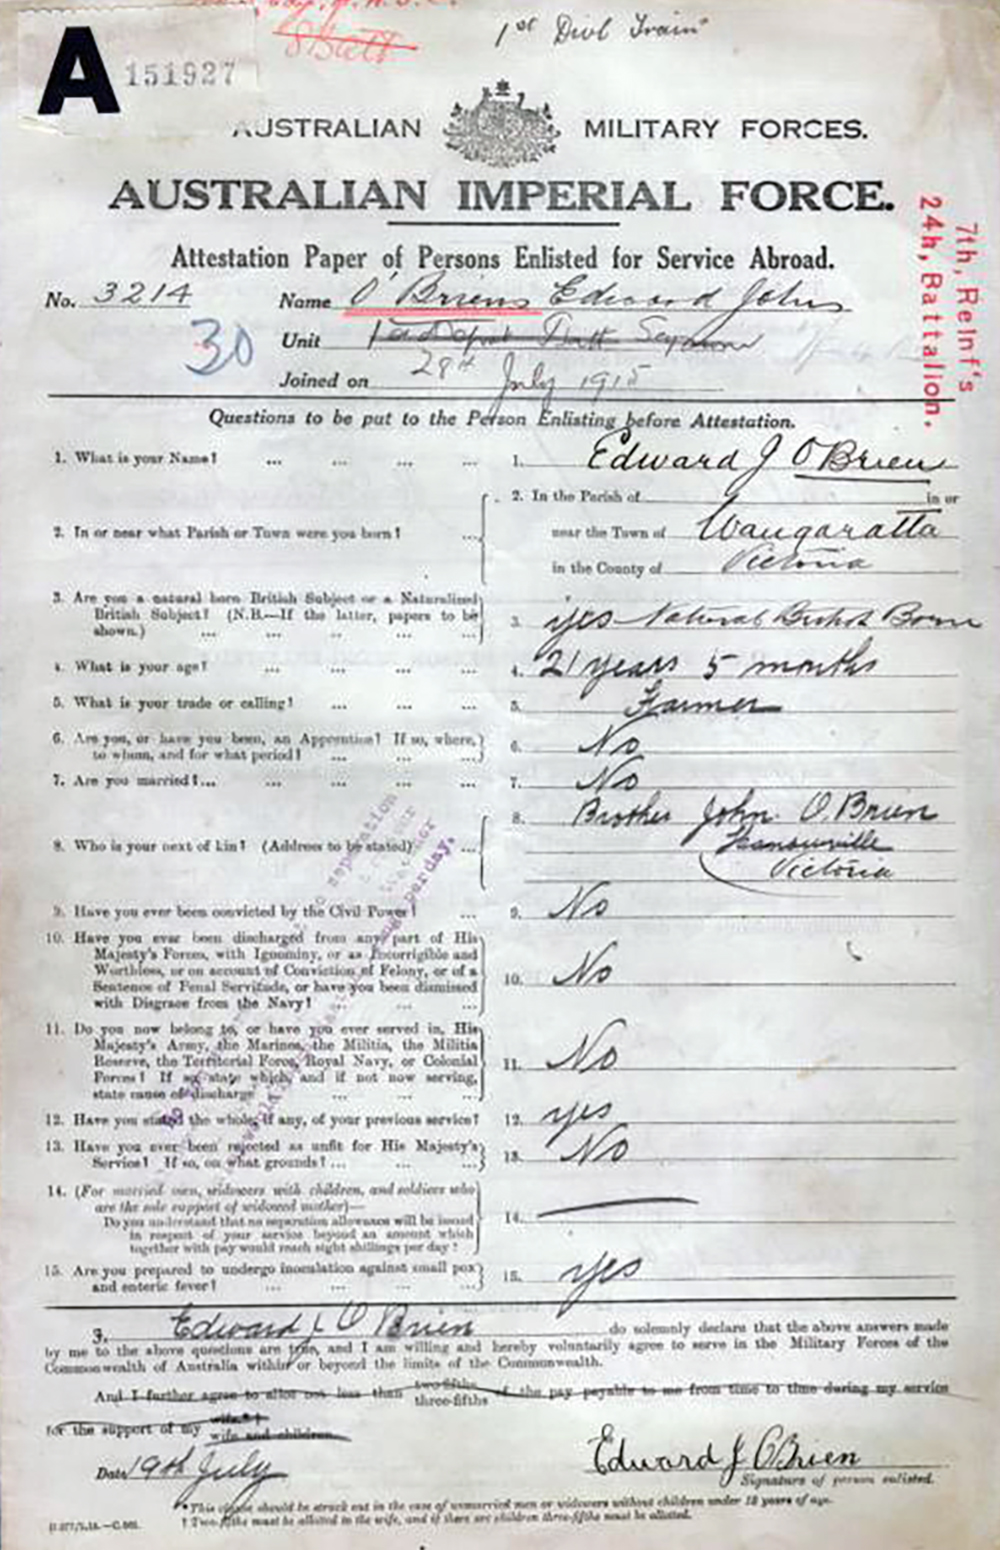 1st Divl Train
A 151927
AUSTRALIAN MILITARY FORCES.
AUSTRALIAN IMPERIAL FORCE.
Attestation Paper of Persons Enlisted for Service Abroad.
No. 3214 Name O'Brien Edward John
30
Unit
Joined on 28th July 1915
7th, Reinf's
24h, Battalion.
Questions to be put to the Person Enlisting before Attestation.
1. What is your Name? ... ... ... ... 1. Edward J O'Brien
2. In or near what Parish or Town were you born? ... 2. In the Parish of in or
near the Town of Wangaratta
in the County of Victoria
3. Are you a natural born British Subject or a Naturalized
British Subject? (N.B.—If the latter, papers to be
shown.) ... ... ... ... ... 3. yes Natural British Born
4. What is your age? ... ... ... ... 4. 21 years 5 months
5. What is your trade or calling? ... ... ... 5. Farmer
6. Are you, or have you been, an Apprentice? If so, where,
to whom, and for what period? ... ... ... 6. No
7. Are you married?... ... ... ... ... 7. No
8. Who is your next of kin? (Address to be stated) ... 8. Brother John O.Brien
Victoria
9. Have you ever been convicted by the Civil Power? ... 9. No
10. Have you ever been discharged from any part of His
Majesty's Forces, with Ignominy, or as Incorrigible and
Worthless, or on account of Conviction of Felony, or of a
Sentence of Penal Servitude, or have you been dismissed
with Disgrace from the Navy? ... ... ... 10. No
11. Do you now belong to, or have you ever served in, His
Majesty's Army, the Marines, the Militia, the Militia
Reserve, the Territorial Force, Royal Navy, or Colonial
Forces? If so, state which, and if not now serving,
state cause of discharge ... ... ... 11. No
12. Have you stated the whole, if any, of your previous service? 12. yes
13. Have you ever been rejected as unfit for His Majesty's
Service? If so, on what grounds? ... ... ... 13. No
14. (For married men, widowers with children, and soldiers who
are the sole support of widowed mother)—
Do you understand that no separation allowance will be issued
in respect of your service beyond an amount which
together with pay would reach eight shillings per day? 14.
15. Are you prepared to undergo inoculation against small pox
and enteric fever? ... ... ... ... 15. yes
Edward J O'Brien do solemnly declare that the above answers made
by me to the above questions are true, and I am willing and hereby voluntarily agree to serve in the Military Forces of the
Commonwealth of Australia within or beyond the limits of the Commonwealth.
And I further agree to allot not less than two-fifths three-fifths of the pay payable to me from time to time during my service
for the support of my wife*† wife and children
Date 19th July Edward J O'Brien
Signature of person enlisted.
*This clause should be struck out in the case of unmarried men or widowers without children under 18 years of age.
† Two-fifths must be allotted to the wife, and if there are children three-fifths must be allotted.